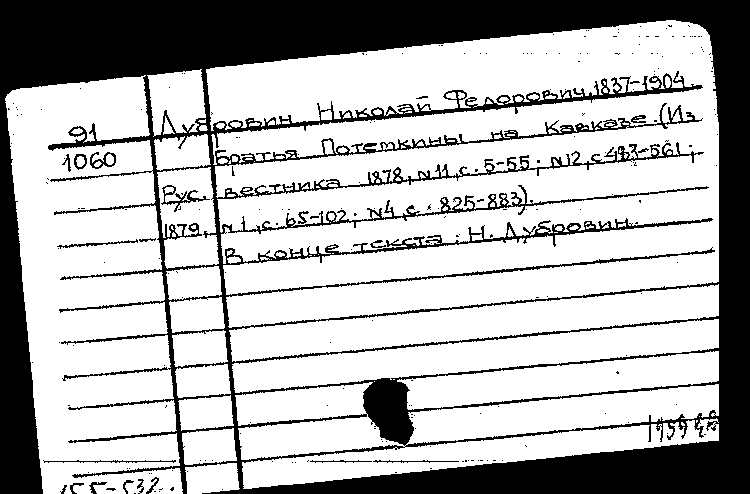 91 Дубровин, Николай Федорович, 1837-1904
1060 Братья Потемкины на Кавказе. (Из
Рус. вестника 1878, N11, с. 5-55; N12, с 483-561;
1879, N1, с. 65-102; N4, с. 825-883).
В конце текста: Н. Дубровин.
1959
155-532.